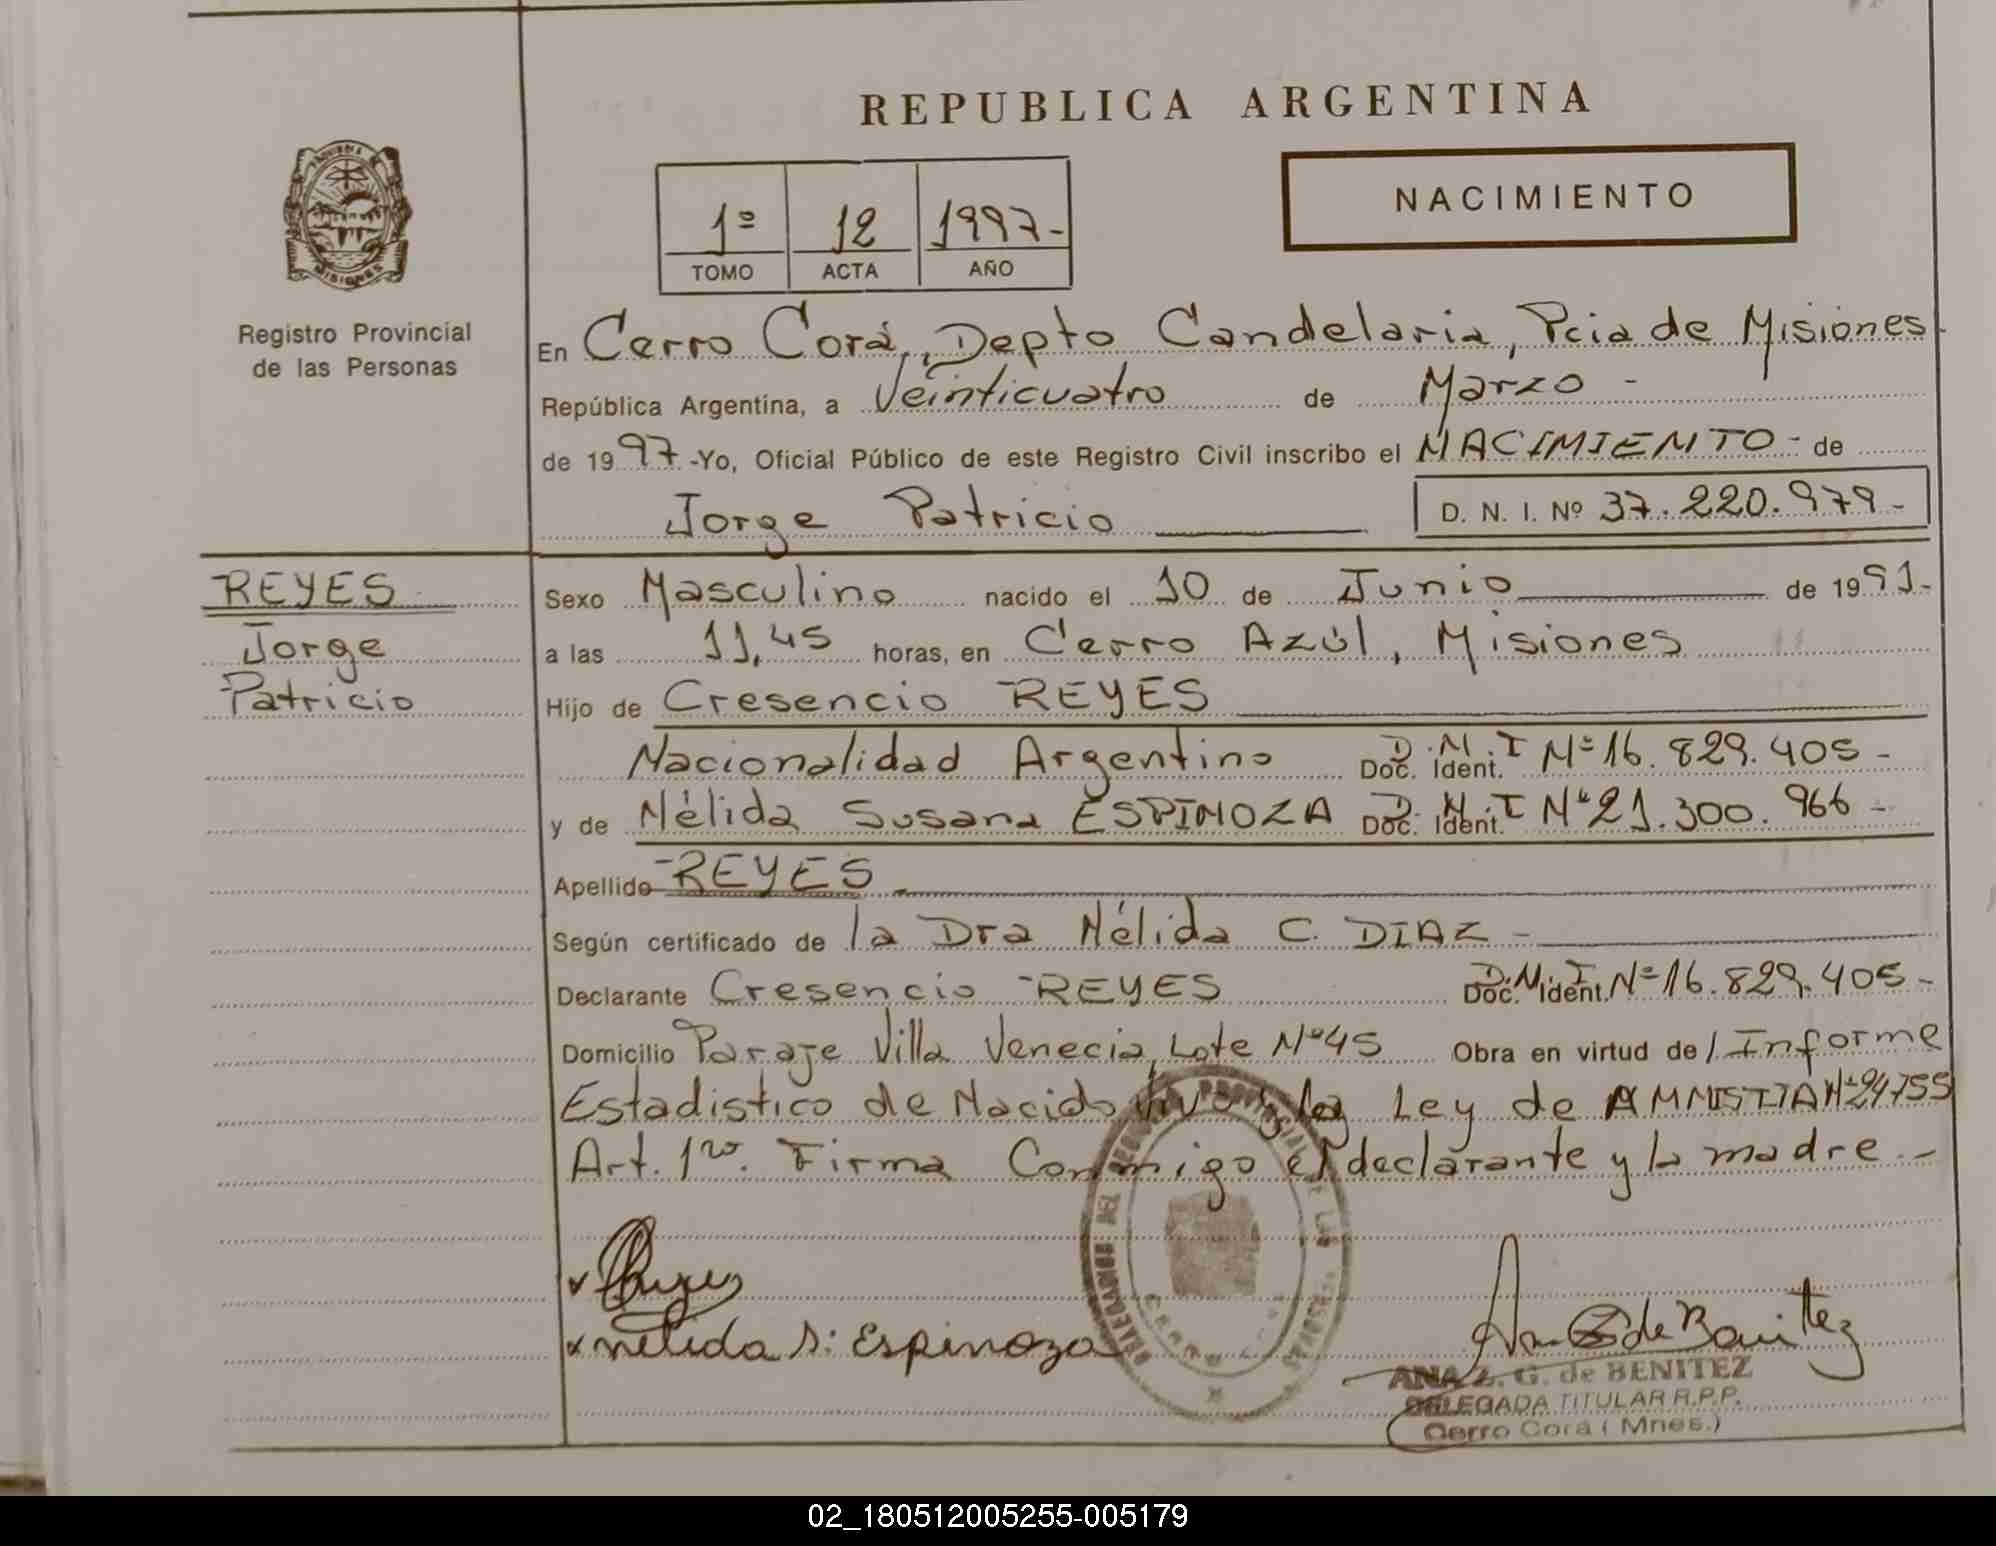 REPUBLICA ARGENTINA
NACIMIENTO
1º 12 1997-
TOMO ACTA AÑO
Registro Provincial
de las Personas
En Cerro Corá, Depto Candelaria, Pcia de Misiones-
República Argentina, a Veinticuatro de Marzo -
de 1997-Yo, Oficial Público de este Registro Civil inscribo el NACIMIENTO- de
Jorge Patricio
D. N. I. Nº 37.220.979-
REYES
Jorge
Patricio
Sexo Masculino nacido el 10 de Junio de 1991-
a las 11,45 horas, en Cerro Azúl, Misiones
Hijo de Cresencio REYES
Nacionalidad Argentino Doc. Ident. D.N.I Nº 16.829.405-
y de Nélida Susana ESPINOZA Doc. Ident. D.N.I Nº 21.300.966-
Apellido REYES
Según certificado de la Dra Nélida C. DIAZ-
Declarante Cresencio REYES Doc. Ident. D.N.I. Nº 16.829.405-
Domicilio Paraje Villa Venecia, Lote Nº 45 Obra en virtud de/Informe
Estadistico de Nacido Vivo y la Ley de AMNISTIA Nº 24755
Art. 1ro. Firma Conmigo el declarante y la madre.-
x nelida s: Espinoza
Ana G de Benitez
ANA Z. G. de BENITEZ
DELEGADA TITULAR R.P.P.
Cerro Corá (Mnes.)
02_180512005255-005179